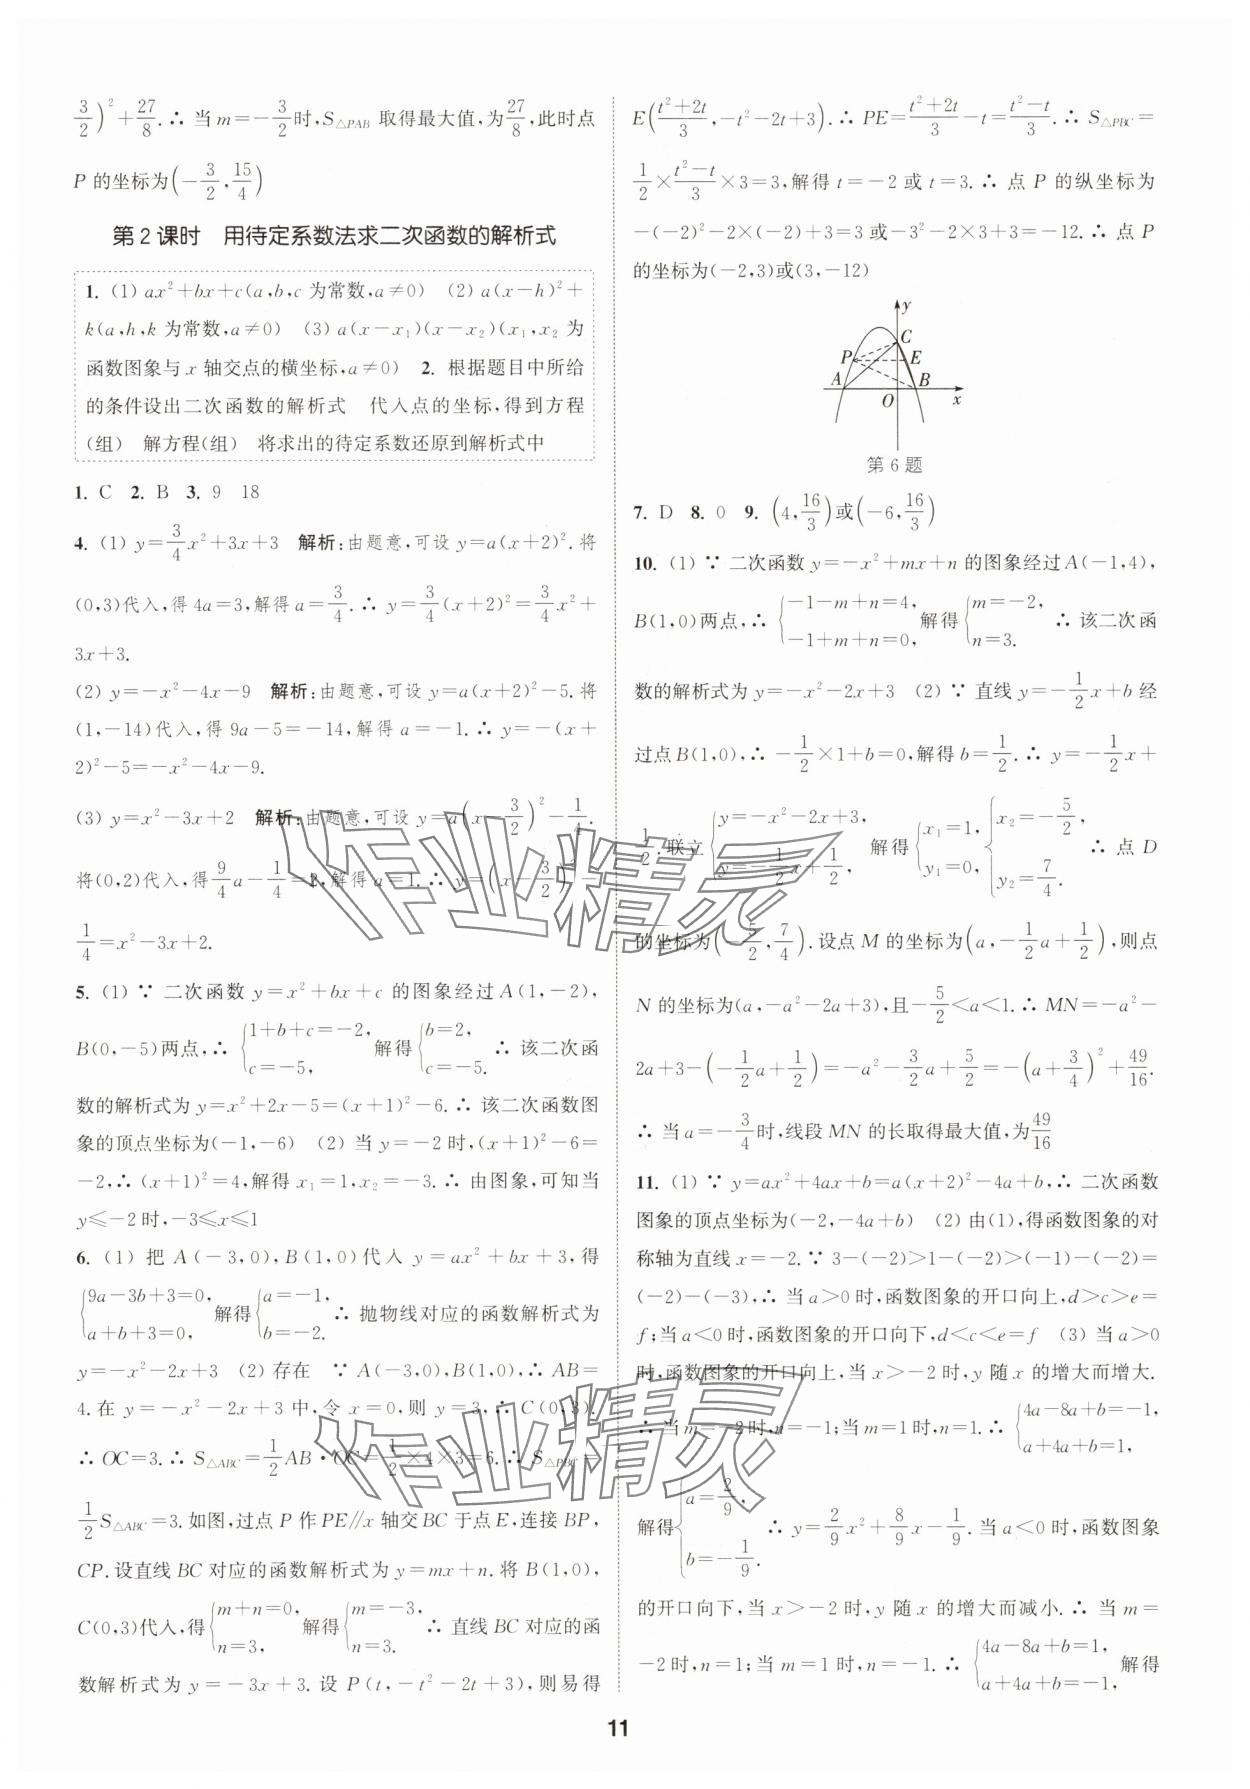 3/2)²+27/8.∴ 当 m=-3/2时,S△PAB 取得最大值,为27/8,此时点
P 的坐标为(-3/2,15/4)
第 2 课时　用待定系数法求二次函数的解析式
1. (1) ax²+bx+c(a,b,c 为常数,a≠0)　(2) a(x-h)²+
k(a,h,k 为常数,a≠0)　(3) a(x-x₁)(x-x₂)(x₁,x₂ 为
函数图象与 x 轴交点的横坐标,a≠0)　2. 根据题目中所给
的条件设出二次函数的解析式　代入点的坐标,得到方程
(组)　解方程(组)　将求出的待定系数还原到解析式中
1. C　2. B　3. 9　18
4. (1) y=3/4x²+3x+3　解析:由题意,可设 y=a(x+2)².将
(0,3)代入,得 4a=3,解得 a=3/4.∴ y=3/4(x+2)²=3/4x²+
3x+3.
(2) y=-x²-4x-9　解析:由题意,可设 y=a(x+2)²-5.将
(1,-14)代入,得 9a-5=-14,解得 a=-1.∴ y=-(x+
2)²-5=-x²-4x-9.
(3) y=x²-3x+2　解析:由题意,可设 y=a(x-3/2)²-1/4.
将(0,2)代入,得9/4a-1/4=2,解得 a=1.∴ y=(x-3/2)²-
1/4=x²-3x+2.
5. (1) ∵ 二次函数 y=x²+bx+c 的图象经过 A(1,-2),
B(0,-5)两点,∴ {1+b+c=-2, c=-5, 解得{b=2, c=-5. ∴ 该二次函
数的解析式为 y=x²+2x-5=(x+1)²-6.∴ 该二次函数图
象的顶点坐标为(-1,-6)　(2) 当 y=-2时,(x+1)²-6=
-2,∴ (x+1)²=4,解得 x₁=1,x₂=-3.∴ 由图象,可知当
y≤-2时,-3≤x≤1
6. (1) 把 A(-3,0),B(1,0)代入 y=ax²+bx+3,得
{9a-3b+3=0, a+b+3=0, 解得{a=-1, b=-2. ∴ 抛物线对应的函数解析式为
y=-x²-2x+3　(2) 存在　∵ A(-3,0),B(1,0),∴ AB=
4.在 y=-x²-2x+3中,令 x=0,则 y=3,∴ C(0,3).
∴ OC=3.∴ S△ABC=1/2AB·OC=1/2×4×3=6.∴ S△PBC=
1/2S△ABC=3.如图,过点 P 作 PE∥x 轴交 BC 于点 E,连接 BP,
CP.设直线 BC 对应的函数解析式为 y=mx+n.将 B(1,0),
C(0,3)代入,得{m+n=0, n=3, 解得{m=-3, n=3. ∴ 直线 BC 对应的函
数解析式为 y=-3x+3.设 P(t,-t²-2t+3),则易得
E((t²+2t)/3,-t²-2t+3).∴ PE=(t²+2t)/3-t=(t²-t)/3.∴ S△PBC=
1/2×(t²-t)/3×3=3,解得 t=-2 或 t=3.∴ 点 P 的纵坐标为
-(-2)²-2×(-2)+3=3 或-3²-2×3+3=-12.∴ 点 P
的坐标为(-2,3)或(3,-12)
y
C
P
E
A
B
O
x
第 6 题
7. D　8. 0　9. (4,16/3)或(-6,16/3)
10. (1) ∵ 二次函数 y=-x²+mx+n 的图象经过A(-1,4),
B(1,0)两点,∴ {-1-m+n=4, -1+m+n=0, 解得{m=-2, n=3. ∴ 该二次函
数的解析式为 y=-x²-2x+3　(2) ∵ 直线 y=-1/2x+b 经
过点 B(1,0),∴ -1/2×1+b=0,解得 b=1/2.∴ y=-1/2x+
1/2.联立{y=-x²-2x+3, y=-1/2x+1/2, 解得{x₁=1, y₁=0, {x₂=-5/2, y₂=7/4. ∴ 点 D
的坐标为(-5/2,7/4).设点 M 的坐标为(a,-1/2a+1/2),则点
N 的坐标为(a,-a²-2a+3),且-5/2<a<1.∴ MN=-a²-
2a+3-(-1/2a+1/2)=-a²-3/2a+5/2=-(a+3/4)²+49/16.
∴ 当 a=-3/4时,线段 MN 的长取得最大值,为49/16
11. (1) ∵ y=ax²+4ax+b=a(x+2)²-4a+b,∴ 二次函数
图象的顶点坐标为(-2,-4a+b)　(2) 由(1),得函数图象的对
称轴为直线 x=-2.∵ 3-(-2)>1-(-2)>(-1)-(-2)=
(-2)-(-3),∴ 当 a>0时,函数图象的开口向上,d>c>e=
f;当 a<0时,函数图象的开口向下,d<c<e=f　(3) 当 a>0
时,函数图象的开口向上,当 x>-2时,y 随 x 的增大而增大.
∴ 当 m=-2时,n=-1;当 m=1时,n=1.∴ {4a-8a+b=-1, a+4a+b=1,
解得{a=2/9, b=-1/9. ∴ y=2/9x²+8/9x-1/9.当 a<0时,函数图象
的开口向下,当 x>-2时,y 随 x 的增大而减小.∴ 当 m=
-2时,n=1;当 m=1时,n=-1.∴ {4a-8a+b=1, a+4a+b=-1, 解得
11
作业精灵
作业精灵